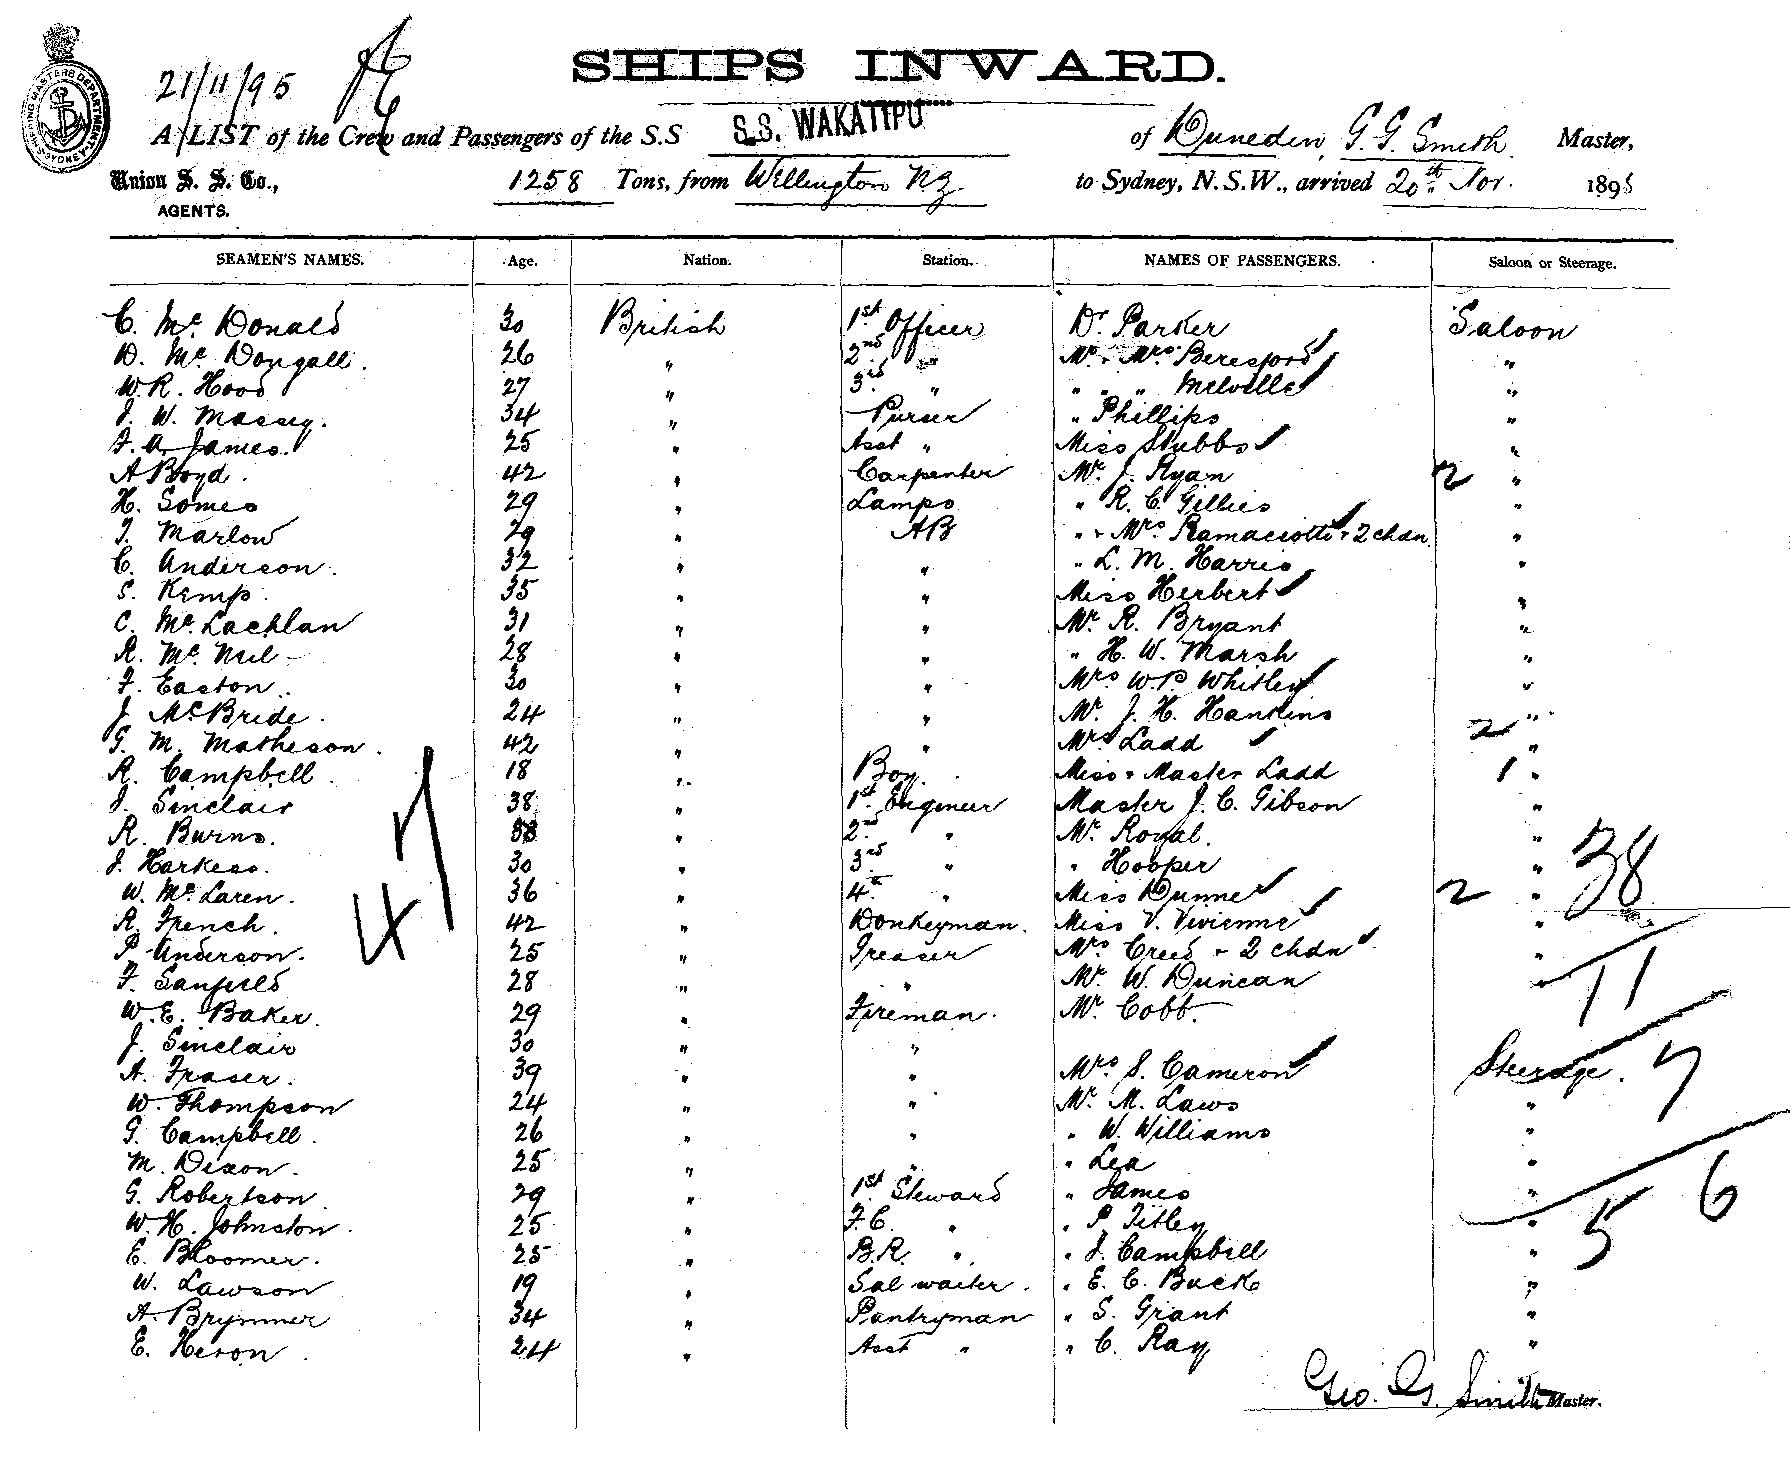 21/11/95
SHIPS INWARD.
A LIST of the Crew and Passengers of the S.S S.S. WAKATIPU of Dunedin, G. G. Smith Master,
Union S. S. Co., 1258 Tons, from Wellington NZ. to Sydney, N.S.W., arrived 20th Nov. 1895
AGENTS.
SEAMEN'S NAMES. Age. Nation. Station. NAMES OF PASSENGERS. Saloon or Steerage.
C. Mc Donald 30 British 1st Officer Dr Parker Saloon
D. Mc Dougall. 26 " 2nd " Mr & Mrs Beresford "
W. R. Hood 27 " 3rd " " " " Melville "
J. W. Massey. 34 " Purser " Phillips "
F. A. James. 25 " Asst " Miss Stubbs "
A Boyd. 42 " Carpenter Mr J. Ryan 2 "
H. Somes 29 " Lamps " R. C. Gillies "
T. Marlow 29 " AB " & Mrs Ramaciotti & 2 chdn. "
C. Anderson. 32 " " " L. M. Harris "
S. Kemp. 35 " " Miss Herbert "
C. Mc Lachlan 31 " " Mr R. Bryant "
R. Mc Neil 28 " " " H. W. Marsh "
F. Easton.. 30 " " Mrs W. P. Whitley "
J. McBride. 24 " " Mr. J. H. Hankins "
G. M. Matheson. 42 " " Mrs Ladd 2 "
R. Campbell. 18 " Boy. Miss & Master Ladd 1 "
J. Sinclair 38 " 1st Engineer Master J. C. Gibson "
R. Burns. 38 " 2nd " Mr Royal. "
J. Harkess. 30 " 3rd " " Hooper " 38
W. Mc Laren. 36 " 4th " Miss Dunne 2 "
R. French. 42 " Donkeyman. Miss V. Vivienne "
47
P. Anderson. 25 " Greaser Mrs Creed & 2 chdn "
F. Sanfield 28 " " Mr W. Duncan " 11
W. E. Baker. 29 " Fireman. Mr Cobb.
J. Sinclair 30 " "
A. Fraser. 39 " " Mrs S. Cameron Steerage. 7
W. Thompson 24 " " Mr M. Laws "
G. Campbell. 26 " " " W. Williams "
M. Dixon. 25 " " " Lea "
G. Robertson 29 " 1st Steward " James " 56
W. H. Johnston. 25 " F.C. " " P. Titley "
E. Bloomer. 25 " B.R. " " J. Campbell "
W. Lawson 19 " Sal waiter. " E. C. Buck "
A. Brymner 34 " Pantryman " S. Grant "
E. Heron. 24 " Asst " " C. Ray "
Geo. G. Smith Master.